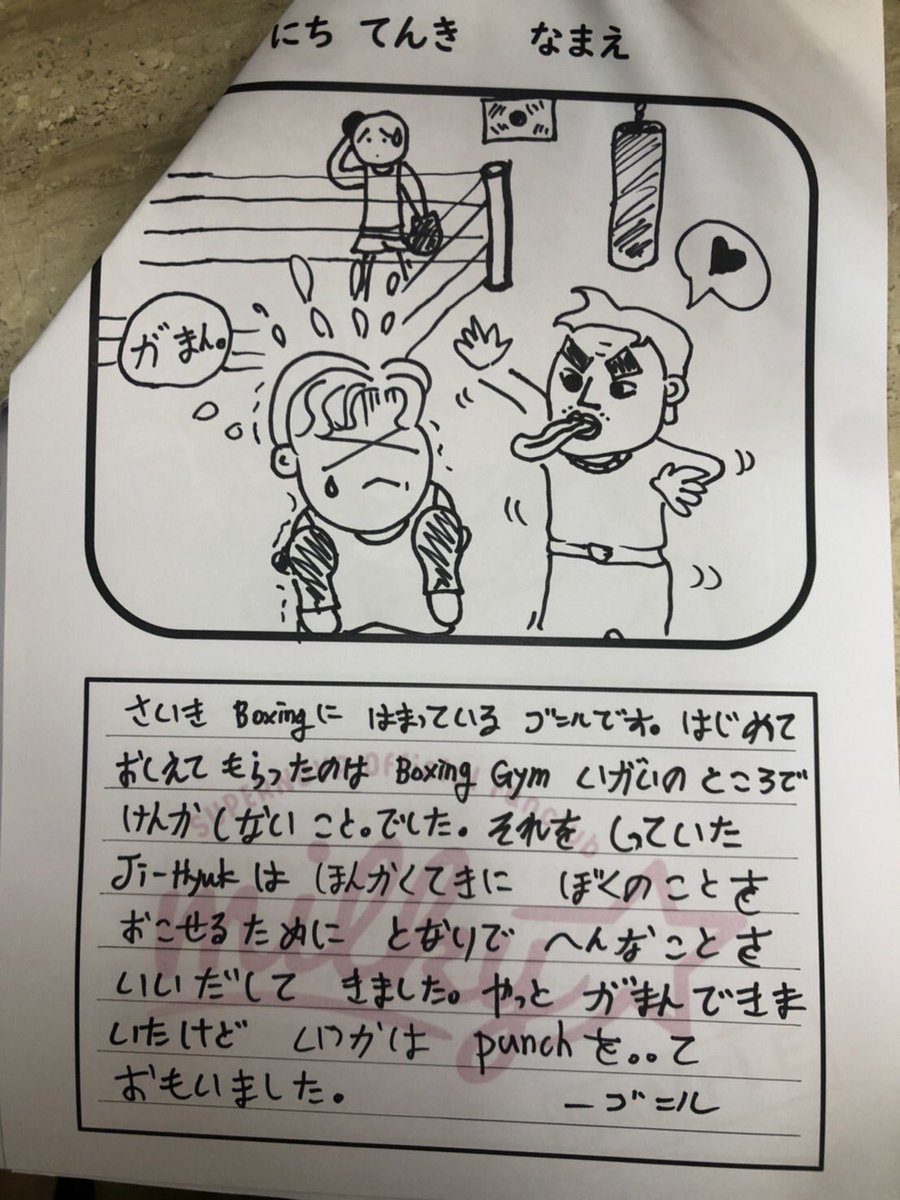 にち てんき なまえ
がまん。
さいき Boxingに はまっている ゴニルです。はじめて
おしえて もらったのは Boxing Gym いがいの ところで
けんか しない こと。でした。それを しっていた
Ji-Hyuk は ほんかくてきに ぼくのこと を
おこせるために となりで へんなこと を
いいだして きました。やっと がまんできま
いたけど いつかは punch を。。て
おもいました。 ーゴニル
SUPERNOVA Official Fanclub
milky